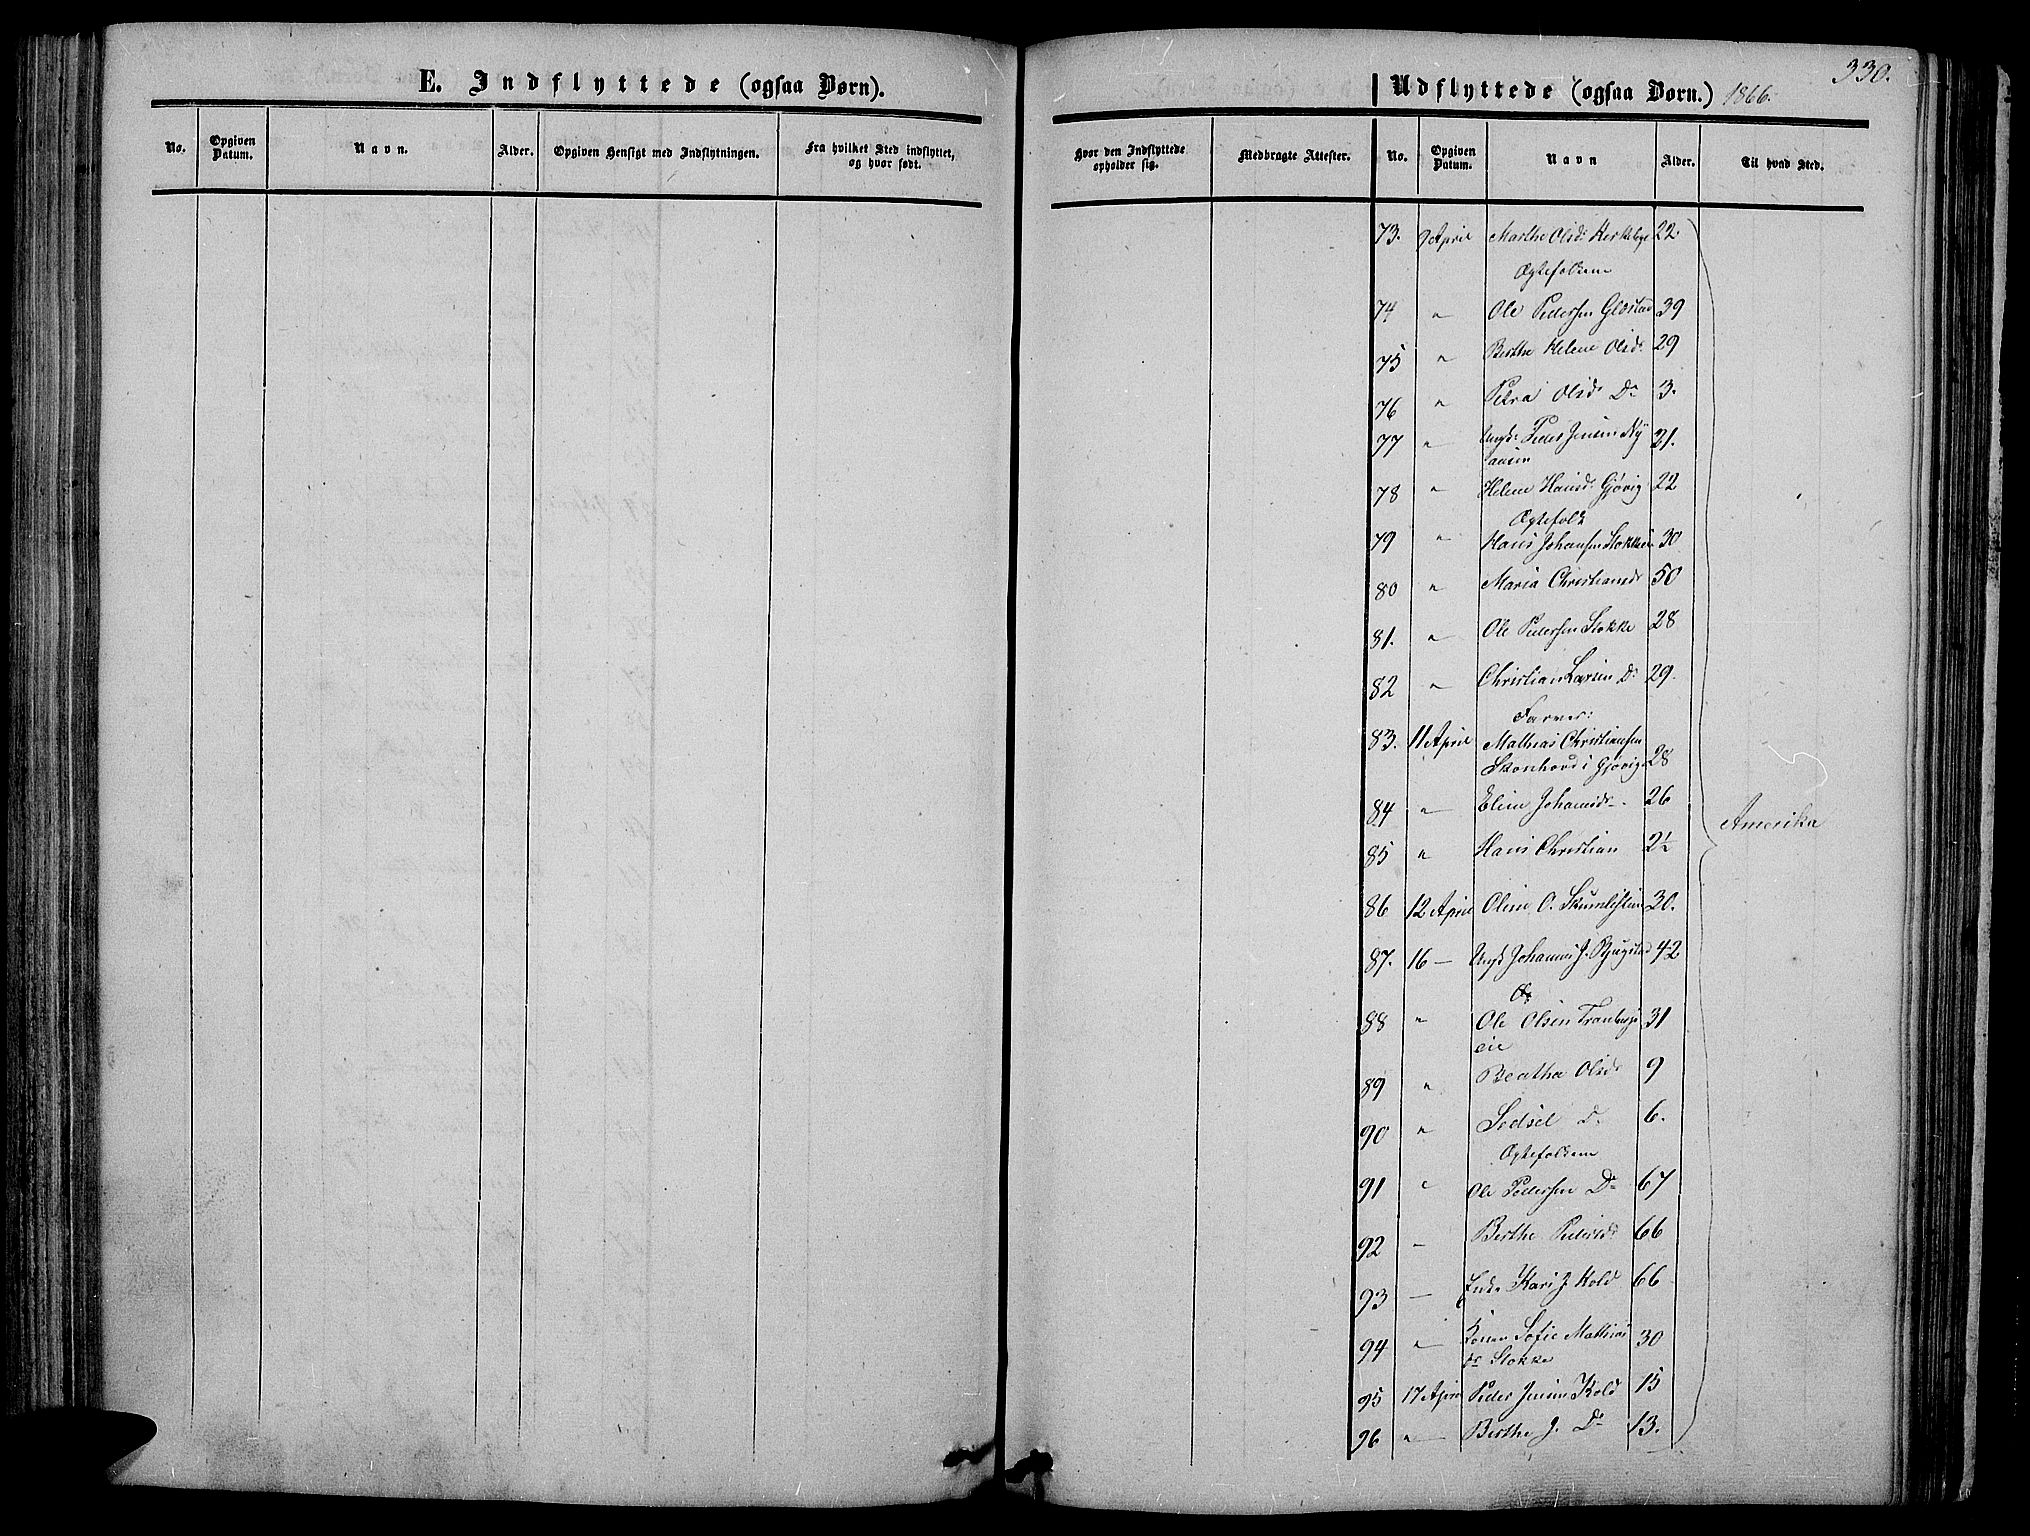 330.
E. Indflyttede (ogsaa Børn).
No. Opgiven Datum. Navn. Alder. Opgiven Hensigt med Indflytningen. Fra hvilket Sted indflyttet, og hvor født.
Udflyttede (ogsaa Børn.) 1866.
Hvor den Indflyttede opholder sig. Medbragte Attester. No. Opgiven Datum. Navn Alder. Til hvad Sted.
73. 9 April Marthe Olsdr 22.
Ægtefolkene
74 " Ole Pedersen Glæstad 39
75 " Berthe Helene Olsdr 29
76 " Petra Olsdr Do 3.
77 " Ungk. Peder Jensen Ny 21.
aasen
78 " Helene Hansdr Gjøvig 22
Ægtefolk
79 " Hans Johansen Stokke 30
80 " Maria Christiansdr 50
81. " Ole Pedersen Stokke 28
82 " Christian Larsen Do 29.
83. 11 April Mathias Christiansen
i Gjøvig 28
84 " Eline Johansdr 26
85 " Hans Christian 2½
Amerika
86 12 April Oline O. 30.
87. 16 — Ungk Johannes J. Bjugstad 42
88 " Ole Olsen Tranberg 31
eie
89 " Beatha Olsdr 9
90 " Sedsel Do 6.
Ægtefolkene
91 " Ole Pedersen Do 67
92 — Berthe Pedersdr 66
93 — Enke Kari J. Kold 66
94 " Konen Sofie Mathias 30
dr Stokke
95 17 April Peder Jensen Kold 15
96 " Berthe J. Do 13.